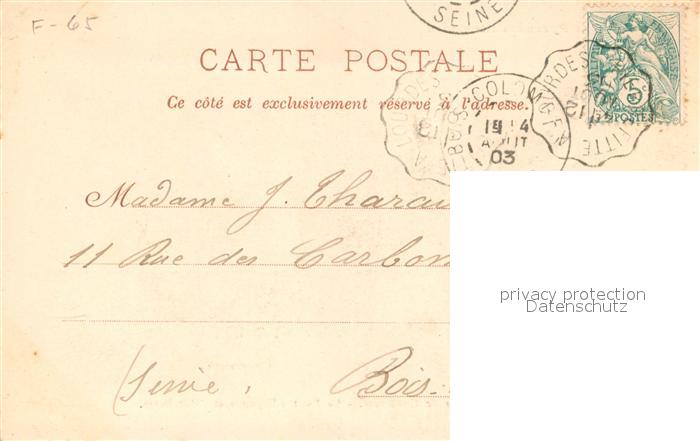 F-65
SEINE
CARTE POSTALE
Ce côté est exclusivement réservé à l'adresse.
COLOM
AOUT
03
5
POSTES
Madame J. Tharau
11 Rue des Carbon
(Seine.
Bois
privacy protection
Datenschutz